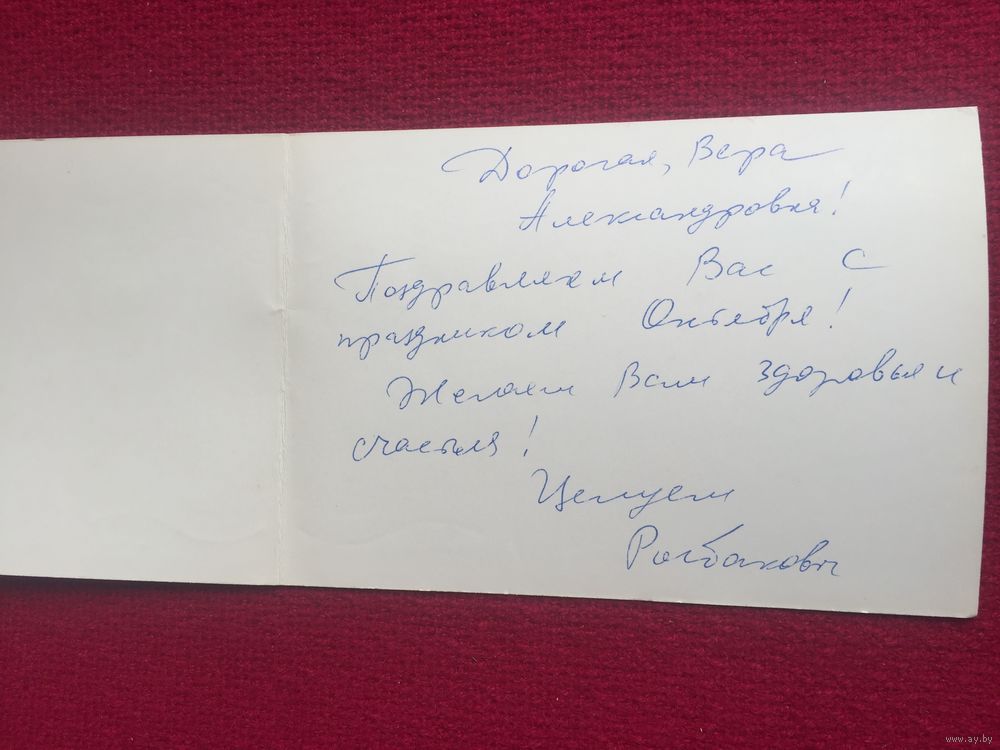 Дорогая, Вера
Александровна!
Поздравляем Вас с
праздником Октября!
Желаем Вам здоровья и
счастья!
Целуем
Рыбаковы
www.ay.by